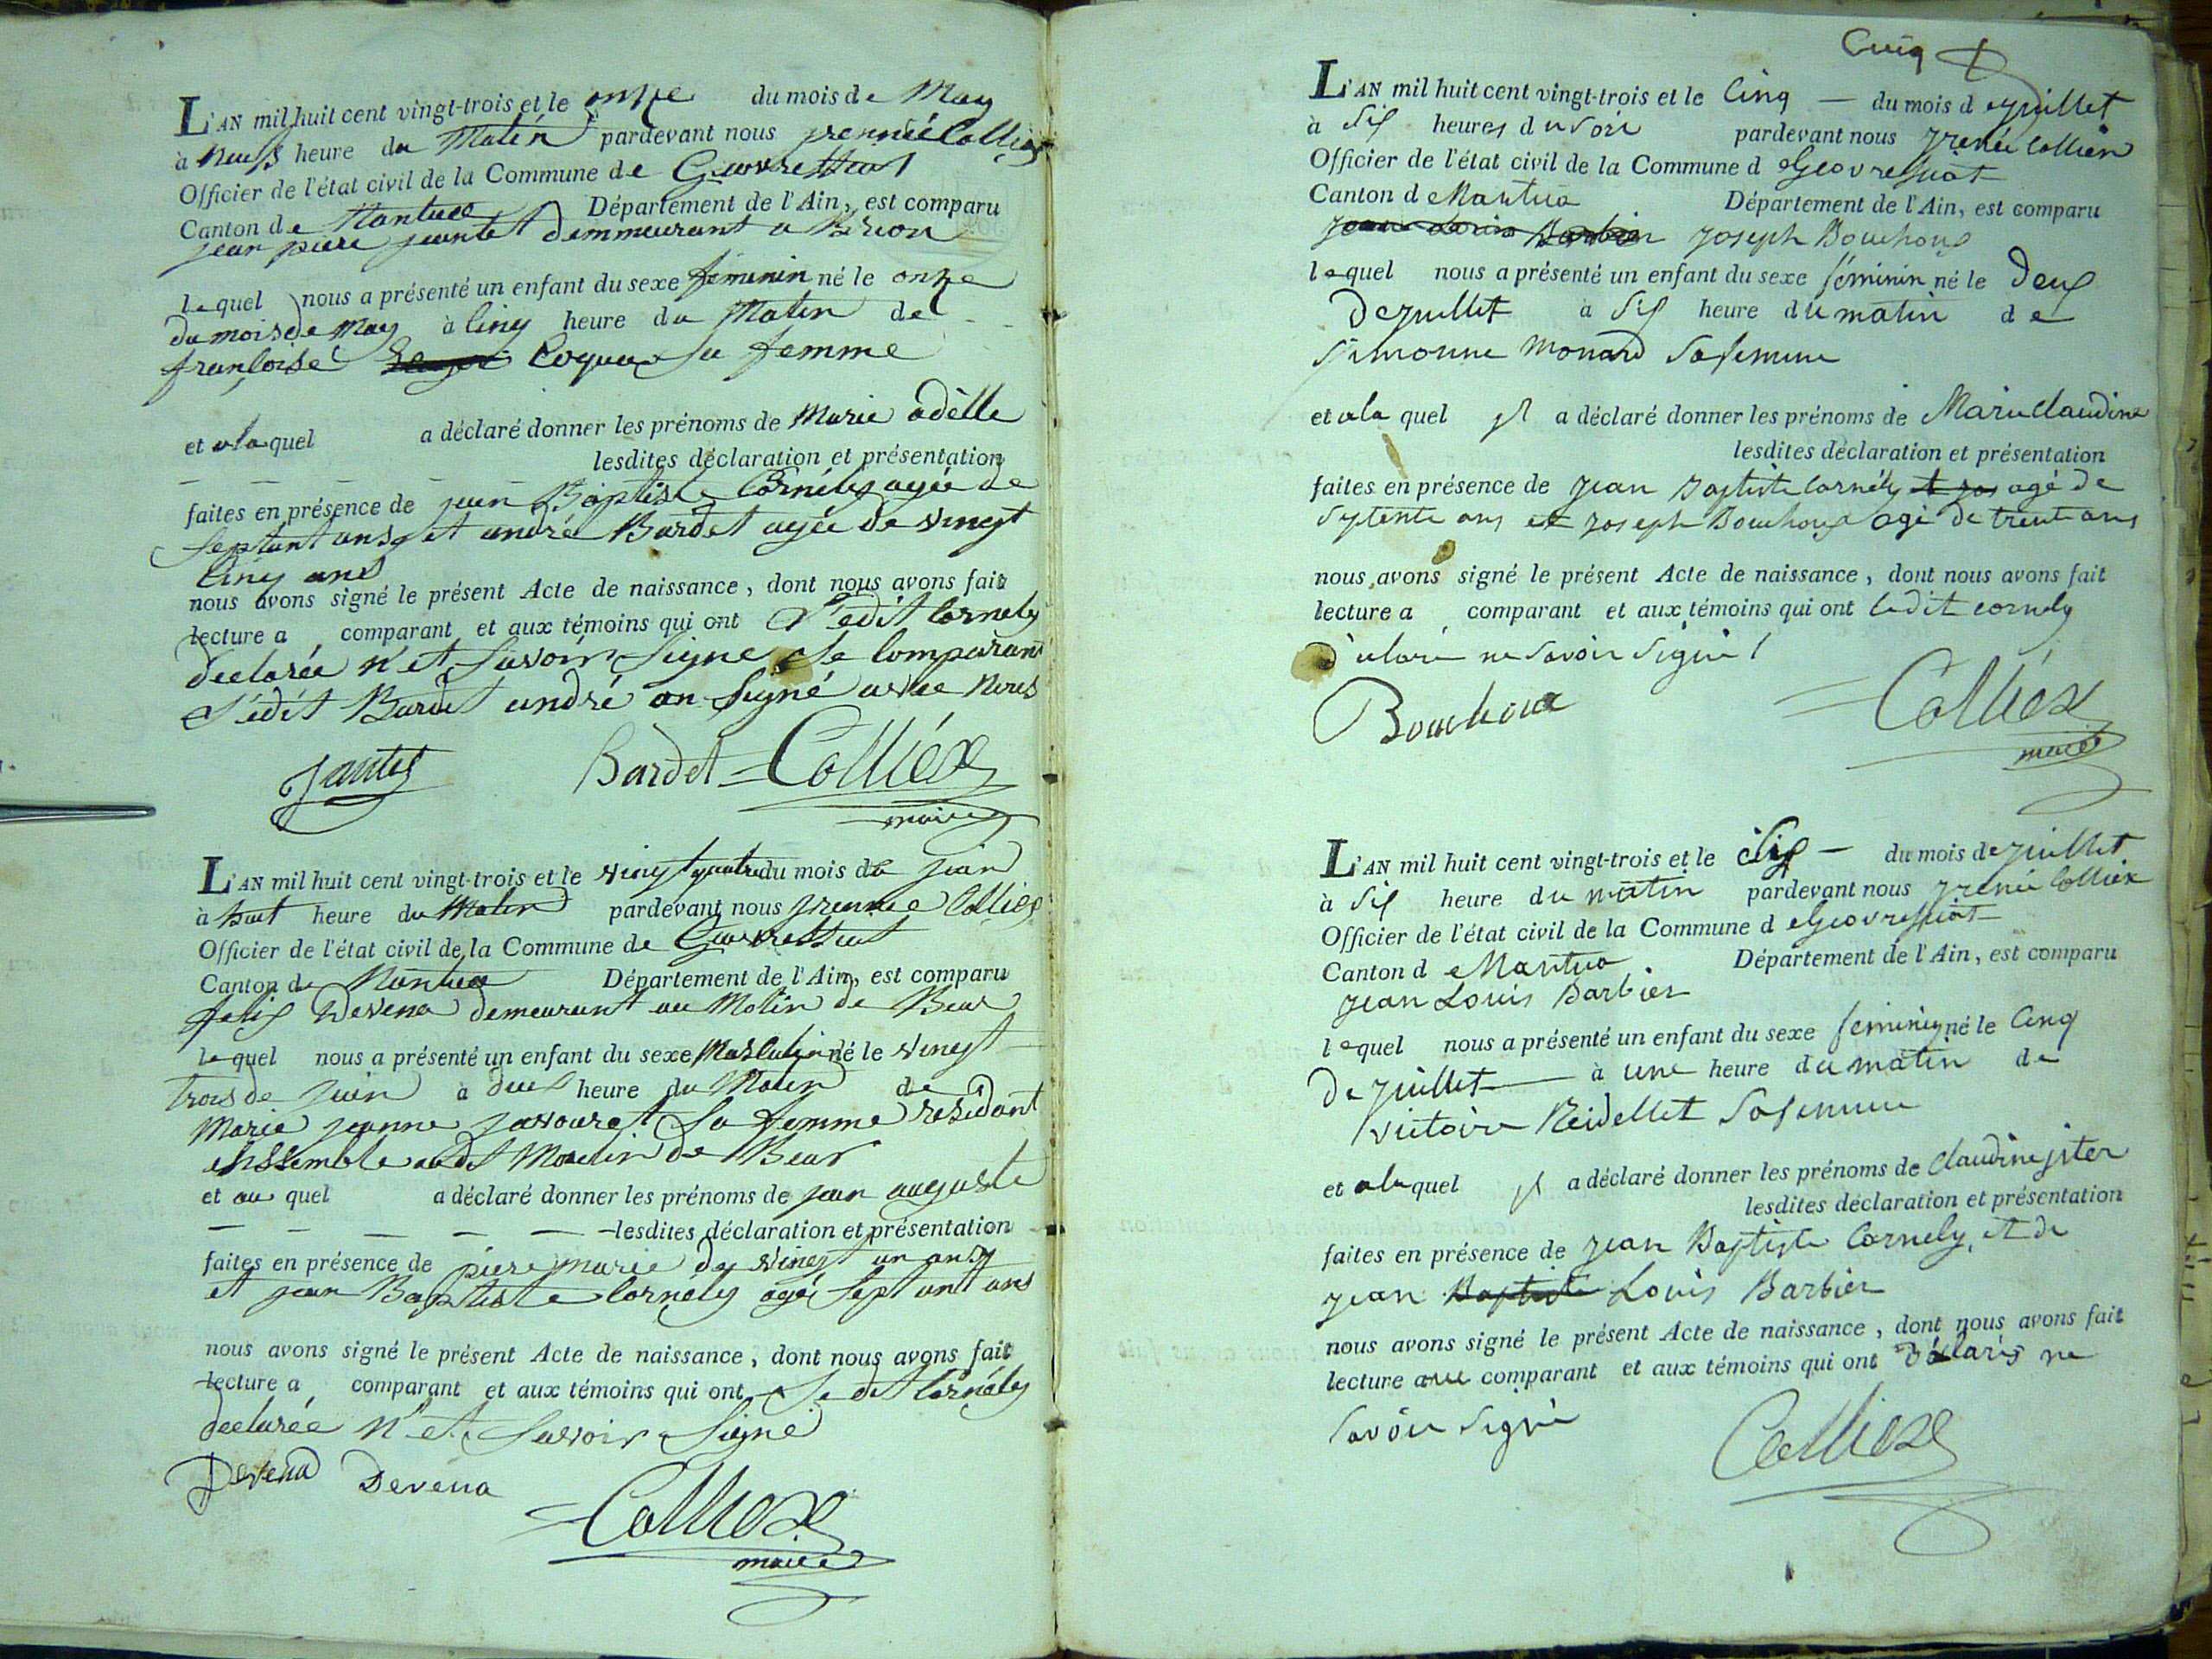 L'AN mil huit cent vingt-trois et le onze du mois de May
à neuf heure du Matin pardevant nous
Officier de l'état civil de la Commune de
Canton de Nantua Département de l'Ain, est comparu
jean piere demmeurant a Brion
le quel nous a présenté un enfant du sexe femenin né le onze
du mois de May à Cinq heure du Matin de
françoise Coquu Sa femme
et a la quel a déclaré donner les prénoms de Marie adèlle
lesdites déclaration et présentation
faites en présence de jean Baptiste Cornely agée de
septant ans et andré Bardet agée de vingt
Cinq ans
nous avons signé le présent Acte de naissance, dont nous avons fait
lecture a comparant et aux témoins qui ont Ledit Cornely
declarée n'et savoir signe le comparant
Ledit Bardet andré on signé avec nous
Jantet Bardet Colliex
maire
L'AN mil huit cent vingt-trois et le vingt quatre du mois de juin
à huit heure du Matin pardevant nous Colliex
Officier de l'état civil de la Commune de
Canton de Nantua Département de l'Ain, est comparu
felix Devena demeurant au Molin de Beur
le quel nous a présenté un enfant du sexe Masculin né le vingt
trois de juin à deux heure du Matin de
Marie jeanne Sa femme residant
ensemble audit Moulin de Beur
et au quel a déclaré donner les prénoms de jean auguste
lesdites déclaration et présentation
faites en présence de piere marie de vingt un ans
et jean Baptiste Cornély agé septant ans
nous avons signé le présent Acte de naissance, dont nous avons fait
lecture a comparant et aux témoins qui ont Le dit Cornély
declarée n'et savoir signé
Devena Devena
Colliex
maire
Cinq
L'AN mil huit cent vingt-trois et le Cinq du mois de juillet
à Six heures du soir pardevant nous jrenée Colliex
Officier de l'état civil de la Commune de Geovressiat
Canton de Nantua Département de l'Ain, est comparu
jean Louis Barbier joseph Bouchoux
le quel nous a présenté un enfant du sexe féminin né le Deux
De juillet à Six heure du matin de
Simonne Monard Sa femme
et a la quel jl a déclaré donner les prénoms de Marie Claudine
lesdites déclaration et présentation
faites en présence de jean Baptiste Cornély et jos agé de
Septente ans et joseph Bouchoux agé de trente ans
nous avons signé le présent Acte de naissance, dont nous avons fait
lecture a comparant et aux témoins qui ont Ledit cornely
déclaré ne savoir signé
Bouchoux Colliex
maire
L'AN mil huit cent vingt-trois et le Six du mois de juillet
à Six heure du matin pardevant nous jrenée Colliex
Officier de l'état civil de la Commune de Geovressiat
Canton de Nantua Département de l'Ain, est comparu
jean Louis Barbier
le quel nous a présenté un enfant du sexe feminin né le Cinq
De juillet à une heure du matin de
Victoire Reidellet Sa femme
et a la quel jl a déclaré donner les prénoms de Claudine
lesdites déclaration et présentation
faites en présence de jean Baptiste Cornely, et de
jean Baptiste Louis Barbier
nous avons signé le présent Acte de naissance, dont nous avons fait
lecture aux comparant et aux témoins qui ont déclarés ne
savoir signé
Colliex